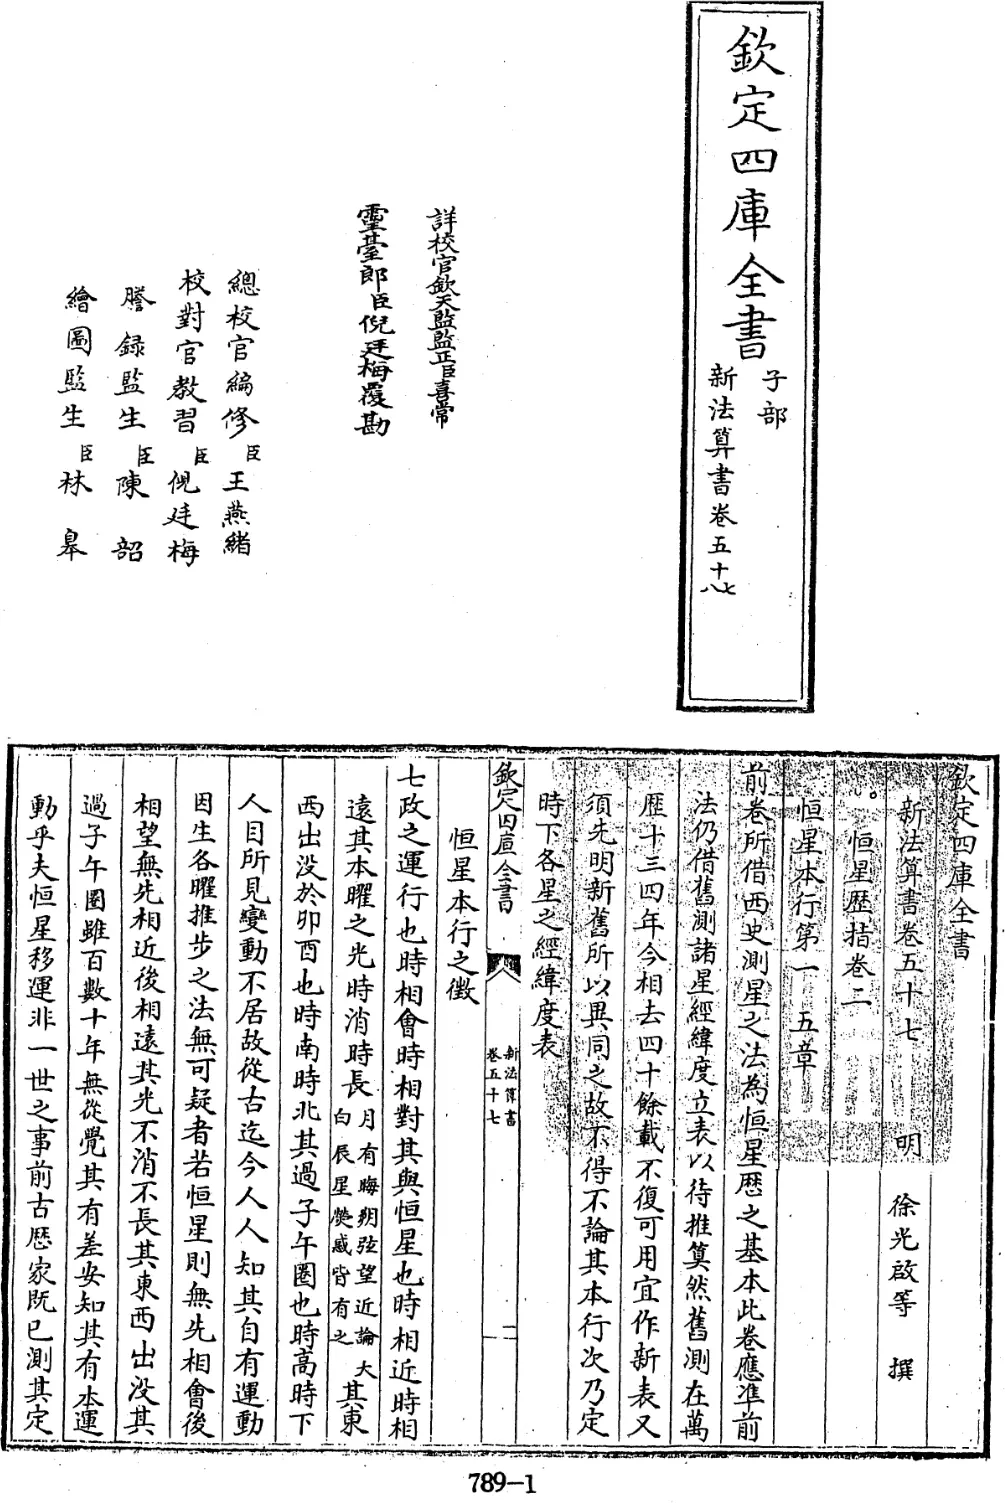 欽定四庫全書
子部
新法算書卷五十七八
詳校官欽天監監正臣喜常
靈臺郎臣倪廷梅覆勘
總校官編修臣王燕緒
校對官教習臣倪廷梅
謄錄監生臣陳韶
繪圖監生臣林臯
欽定四庫全書
新法算書卷五十七 明 徐光啟等 撰
恒星歴指卷二
恒星本行第一 五章
前卷所借西史測星之法為恒星歴之基本此卷應準前
法仍借舊測諸星經緯度立表以待推算然舊測在萬
歴十三四年今相去四十餘載不復可用宜作新表又
須先明新舊所以異同之故不得不論其本行次乃定
時下各星之經緯度表
欽定四庫全書
新法算書
卷五十七
二
恒星本行之徵
七政之運行也時相會時相對其與恒星也時相近時相
遠其本曜之光時消時長月有晦朔弦望近論太白辰星熒惑皆有之其東
西出没於卯酉也時南時北其過子午圈也時高時下
人目所見變動不居故從古迄今人人知其自有運動
因生各曜推步之法無可疑者若恒星則無先相會後
相望無先相近後相遠其光不消不長其東西出没其
過子午圈雖百數十年無從覺其有差安知其有本運
動乎夫恒星移運非一世之事前古歴家既已測其定
789-1